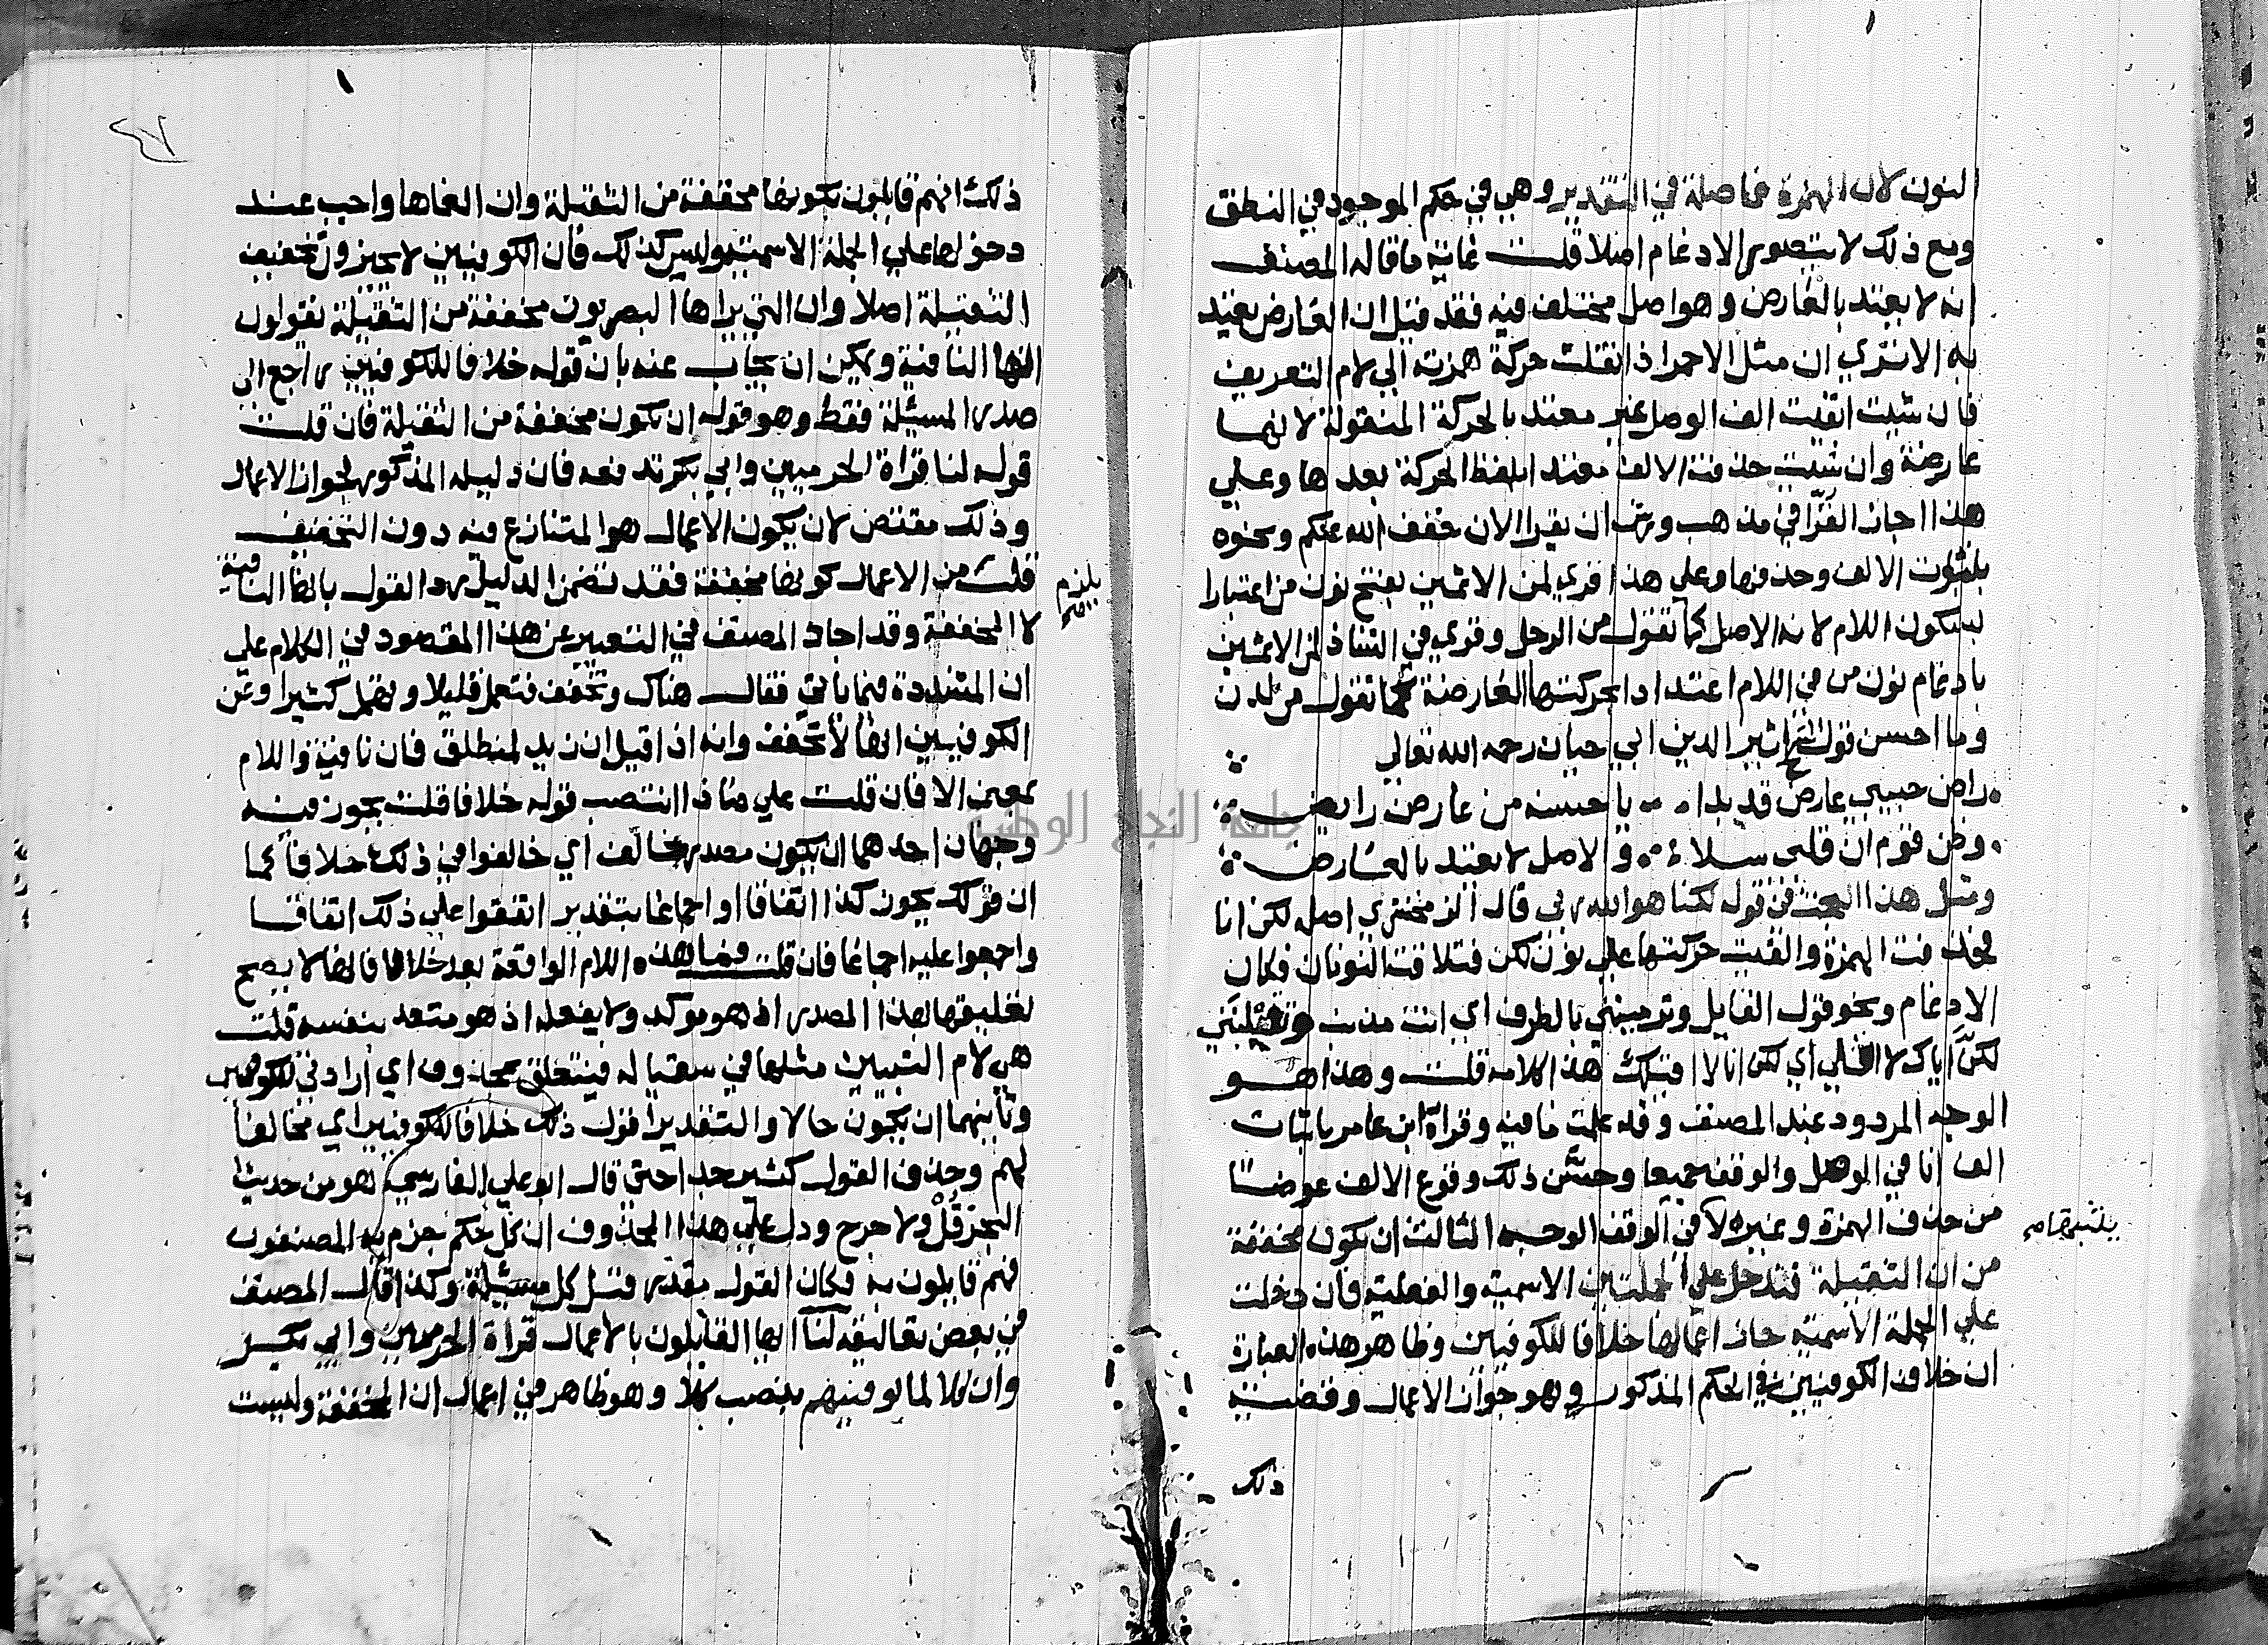 النون لان الهمزة فاصلة في التقدير وهي في حكم الموجود في النطق
ومع ذلك لا يتصور الادغام اصلا قلت غاية ما قاله المصنف
انه لا يعتد بالعارض وهو اصل مختلف فيه فقد قيل ان العارض يعتد
به الا تري ان مثل الاحمر اذا نقلت حركة همزته الي لام التعريف
فان شيت ابقيت الف الوصل غير معتد بالحركة المنقولة لانها
عارضة وان شيت حذفت الالف معتدا بلفظ الحركة بعدها وعلي
هذا اجاز الفرا في مذهب ورش ان يقرا الان خفف الله عنكم ونحوه
بثبوت الالف وحذفها وعلي هذا قري لمن الاثمين بفتح نون من اعتبارا
لسكون اللام لانه الاصل كما تقول من الرجل وقري في الشاذ لمن الاثمين
بادغام نون من في اللام اعتدادا بحركتها العارضة كما تقول من لدن
وما احسن قول الشيخ اثير الدين ابي حيان رحمه الله تعالي
راض حبيبي عارض قد بدا يا حسنه من عارض رايض
وظن قوم ان قلبي سلا والاصل لا يعتد بالعارض
ومثل هذا البحث في قوله لكنا هو الله ربي قال الزمخشري اصله لكن انا
فحذفت الهمزة والقيت حركتها علي نون لكن فتلاقت النونان فكان
الادغام ونحو قول القايل وترمينني بالطرف اي انت مذنب وتقلينني
لكن اياك لا اقلي اي لكن انا لا اقليك هذا كلامه قلت وهذا هو
الوجه المردود عند المصنف وقد علمت ما فيه وقراة ابن عامر باثبات
الف انا في الوصل والوقف جميعا وحسن ذلك وقوع الالف عوضا
من حذف الهمزة وغيره لا في الوقف الوجه الثالث ان تكون مخففة
من ان الثقيلة فتدخل علي الجملتين الاسمية والفعلية فان دخلت
علي الجملة الاسمية جاز اعمالها خلافا للكوفيين وظاهر هذه العبارة
ان خلاف الكوفيين في الحكم المذكور وهو جواز الاعمال وقضية
ذلك
ذلك انهم قايلون بكونها مخففة من الثقيلة وان الغاها واجب عند
دخولها علي الجملة الاسمية وليس كذلك فان الكوفيين لا يجيزون تخفيف
الثقيلة اصلا وان التي يراها البصريون مخففة من الثقيلة يقولون
انها النافية ويمكن ان يجاب عنه بان قوله خلافا للكوفيين راجع الي
صدر المسيلة فقط وهو قوله ان تكون مخففة من الثقيلة فان قلت
قوله لنا قراة الحرميين وابي بكر تدفعه فان دليله المذكور لجواز الاعمال
وذلك مقتض لان يكون الاعمال هو المتنازع فيه دون التخفيف
قلت من الاعمال كونها مخففة فقد تضمن الدليل رد القول بانها النافية
يلزم
لا المخففة وقد اجاد المصنف في التعبير عن هذا المقصود في الكلام علي
ان المشددة فيما ياتي فقال هناك وتخفف فتعمل قليلا وتهمل كثيرا وعن
الكوفيين انها لا تخفف وانه اذا قيل ان زيد لمنطلق فان نافية واللام
بمعني الا فان قلت علي ماذا انتصب قوله خلافا قلت يجوز فيه
وجهان احدهما ان يكون مصدر خالف اي خالفوا في ذلك خلافا كما
ان قولك يجوز كذا اتفاقا او اجماعا بتقدير اتفقوا علي ذلك اتفاقا
واجمعوا عليه اجماعا فان قلت فما هذه اللام الواقعة بعد خلافا فانها لا يصح
تعليقها بهذا المصدر اذ هو موكد ولا بفعله اذ هو متعد بنفسه قلت
هي لام التبيين مثلها في سقيا له فيتعلق بمحذوف اي ارادتي للكوفيين
وثانيهما ان يكون حالا والتقدير اقول ذلك خلافا للكوفيين اي مخالفا
لهم وحذف القول كثير جدا حتي قال ابو علي الفارسي هو من حديث
البحر قل ولا حرج ودل علي هذا المحذوف ان كل حكم جزم به المصنفون
فهم قايلون به فكان القول مقدر قبل كل مسيلة وكذا قال المصنف
في بعض تعاليقه لنا ايها القايلون بالاعمال قراة الحرميين وابي بكر
وان كلا لما ليوفينهم بنصب كلا وهو ظاهر في اعمال ان المخففة وليست